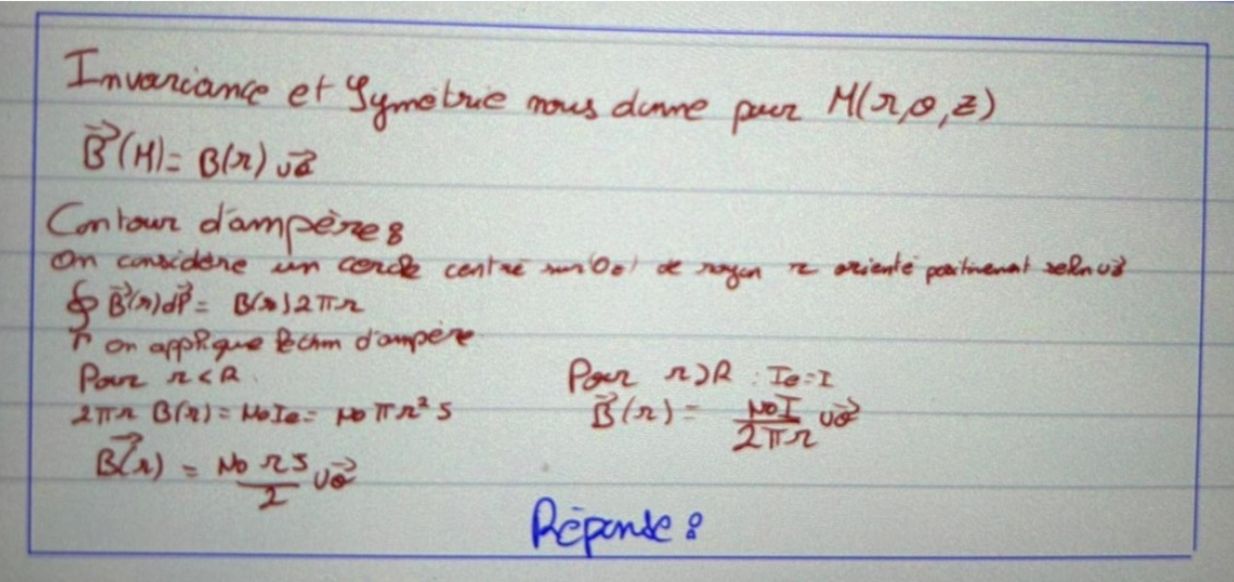 Invariance et Symetrie nous donne pour M(r,θ,z)
B⃗(M)= B(r) uθ⃗
Contour d'ampère :
On considère un cercle centré sur (Oz) de rayon r orienté positivement selon uz⃗
∮ B⃗(r)dl⃗ = B(r)2πr
Γ on applique le thm d'ampère
Pour r<R
2πr B(r) = μ0Ie = μ0 πr² J
B⃗(r) = μ0 r J / 2 uθ⃗
Pour r>R : Ie=I
B⃗(r) = μ0I / 2πr uθ⃗
Réponse :